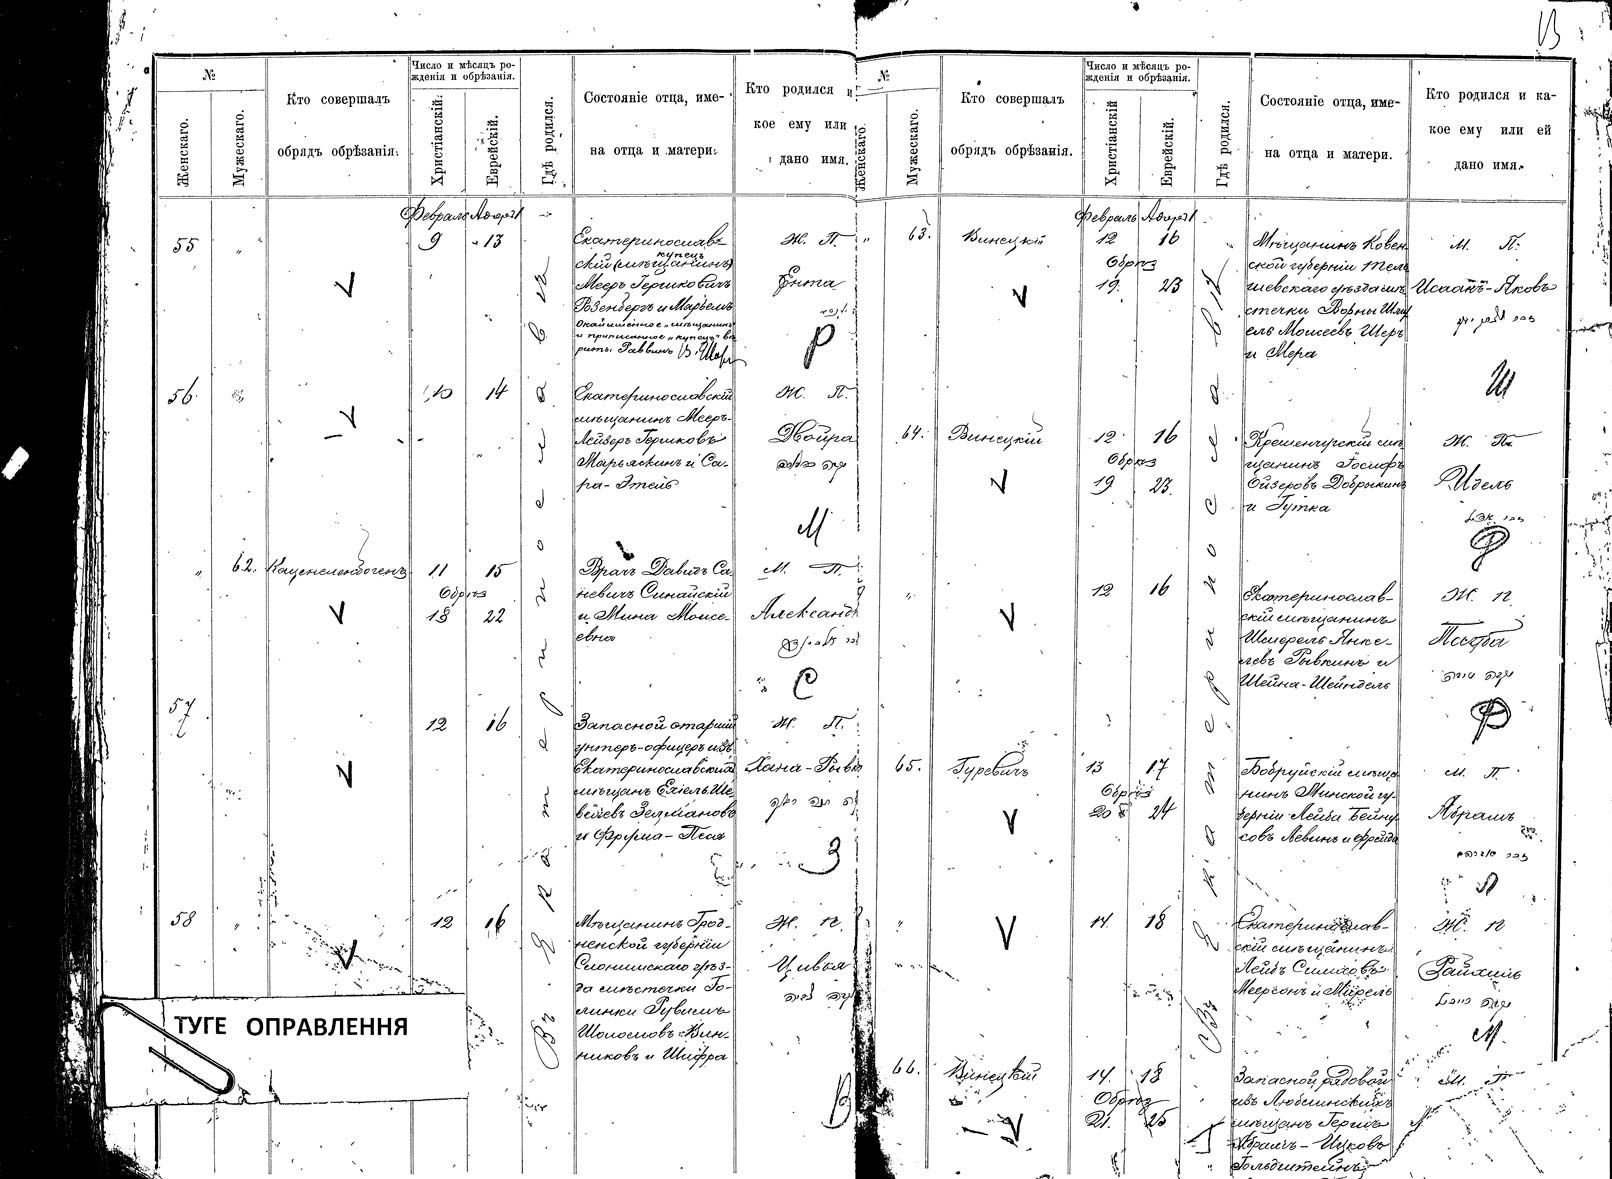 №
Женскаго.
Мужескаго.
Кто совершалъ
обрядъ обрѣзанія.
Число и мѣсяцъ ро-
жденія и обрѣзанія.
Христіанскій.
Еврейскій.
Гдѣ родился.
Состояніе отца, име-
на отца и матери.
Кто родился и
кое ему или
дано имя.
Февраль Адаръ 1
55
9 13
Екатеринослав-
купецъ
скій (мѣщанинъ)
Мееръ Гершковичъ
Розенбергъ и Марьемъ
окаймленное „мѣщанинъ“
и приписанное „купецъ“ вѣ
рить: Раввинъ
Ж. П.
Ента
Р
56
10 14
Екатеринославскій
мѣщанинъ Мееръ-
Лейзеръ Гершковъ
Марьяскинъ и Са-
ра-Этель
Ж. П.
Двойра
М
62. Каценеленбогенъ
11 15
Обрѣз
18 22
Врачъ Давидъ Са-
невичъ Синайскій
и Мина Моисе-
евна
М. П.
Александ
С
57
12 16
Запасной старшій
унтеръ-офицеръ изъ
Екатеринославскихъ
мѣщанъ Ехіель Ше-
веліевъ Зелмановъ
и Фрума-Песя
Ж. П.
Хана-Рывк
З
58
12 16
Мѣщанинъ Грод-
ненской губерніи
Слонимскаго уѣз-
да мѣстечки Го-
линки Рувимъ
Шоломовъ Вин-
никовъ и Шифра
Ж. П.
Цивья
В
Въ Екатеринославѣ
ТУГЕ ОПРАВЛЕННЯ
13
№
Женскаго.
Мужескаго.
Кто совершалъ
обрядъ обрѣзанія.
Число и мѣсяцъ ро-
жденія и обрѣзанія.
Христіанскій
Еврейскій.
Гдѣ родился.
Состояніе отца, име-
на отца и матери.
Кто родился и ка-
кое ему или ей
дано имя.
Февраль Адаръ 1
63. Винецкій
12 16
Обрѣз
19. 23
Мѣщанинъ Ковен-
ской губерніи Тель-
шевскаго уѣзда мѣ-
стечки Ворны Шму
ель Моисеевъ Шеръ
и Мера
М. П.
Исаакъ-Яковъ
Ш
64. Винецкій
12 16
Обрѣз
19 23.
Кременчугскій мѣ-
щанинъ Іосифъ
Ойзеровъ Добрыкинъ
и Гутка
Идель
12 16
Екатеринослав-
скій мѣщанинъ
Шмерель Янке-
левъ Рывкинъ и
Шейна-Шейндель
Ж. П.
65. Гуревичъ
13 17
Обрѣз
20 24
Бобруйскій мѣща-
нинъ Минской гу-
берніи Лейба Бейну-
совъ Левинъ и Фрейда
М. П.
Абрамъ
Л
14 18
Екатеринослав-
скій мѣщанинъ
Лейбъ Симховъ
Меерсонъ и Мирель
Ж. П
М.
66. Винецкій
14. 18
Обрѣз
21. 25
Запасной рядовой
изъ Люблинскихъ
мѣщанъ Гершъ
Абрамъ-Ицковъ
Гольдштейнъ
М. П
Въ Екатеринославѣ